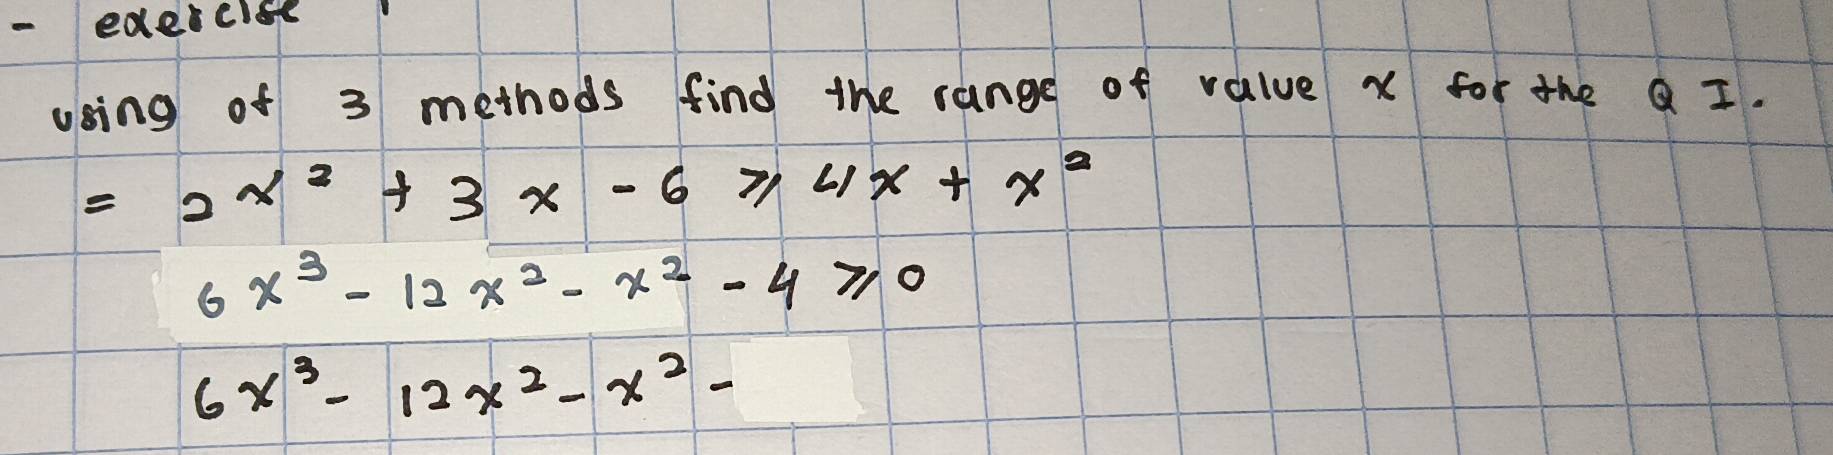 - exercise
using of 3 methods find the range of value x for the Q I.
= 2x² + 3x - 6 ⩾ 4x + x²
6x³ - 12x² - x² - 4 ⩾ 0
6x³ - 12x² - x² -